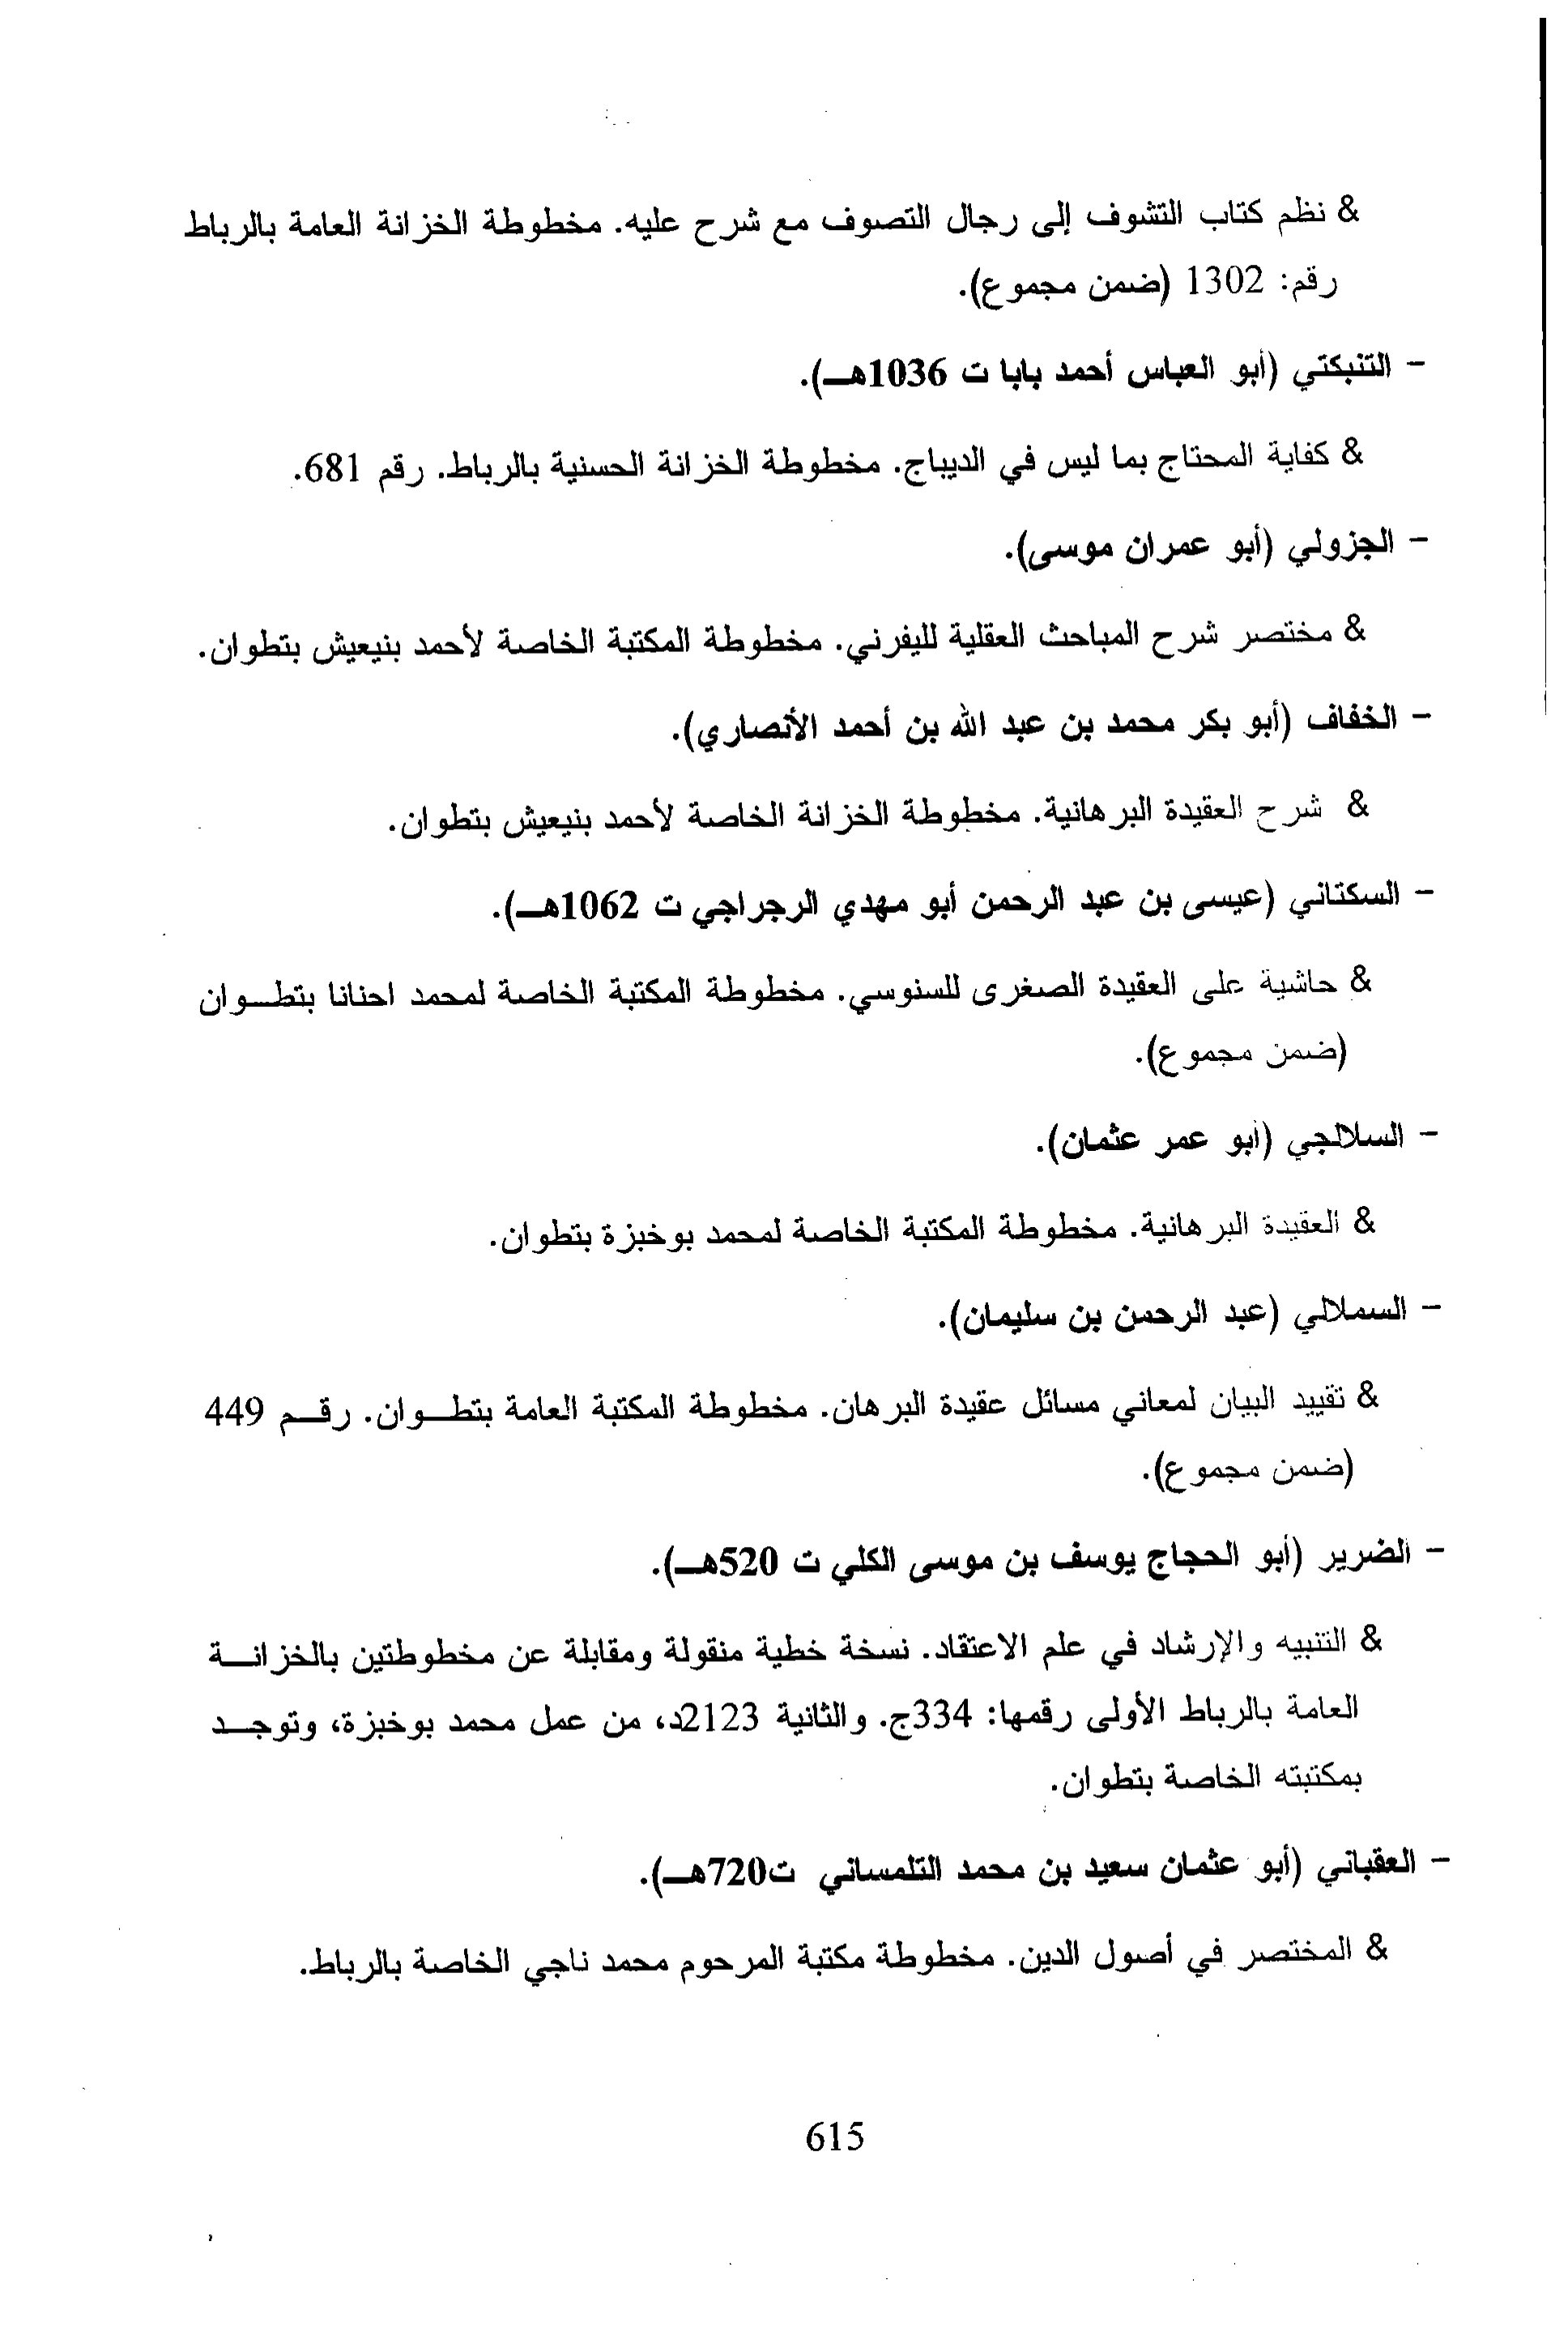 & نظم كتاب التشوف إلى رجال التصوف مع شرح عليه. مخطوطة الخزانة العامة بالرباط
رقم: 1302 (ضمن مجموع).
- التنبكتي (أبو العباس أحمد بابا ت 1036هـ).
& كفاية المحتاج بما ليس في الديباج. مخطوطة الخزانة الحسنية بالرباط. رقم 681.
- الجزولي (أبو عمران موسى).
& مختصر شرح المباحث العقلية لليفرني. مخطوطة المكتبة الخاصة لأحمد بنيعيش بتطوان.
- الخفاف (أبو بكر محمد بن عبد الله بن أحمد الأنصاري).
& شرح العقيدة البرهانية. مخطوطة الخزانة الخاصة لأحمد بنيعيش بتطوان.
- السكتاني (عيسى بن عبد الرحمن أبو مهدي الرجراجي ت 1062هـ).
& حاشية على العقيدة الصغرى للسنوسي. مخطوطة المكتبة الخاصة لمحمد احنانا بتطـوان
(ضمن مجموع).
- السلالجي (أبو عمر عثمان).
& العقيدة البرهانية. مخطوطة المكتبة الخاصة لمحمد بوخبزة بتطوان.
- السملالي (عبد الرحمن بن سليمان).
& تقييد البيان لمعاني مسائل عقيدة البرهان. مخطوطة المكتبة العامة بتطـوان. رقـم 449
(ضمن مجموع).
- الضرير (أبو الحجاج يوسف بن موسى الكلي ت 520هـ).
& التنبيه والإرشاد في علم الاعتقاد. نسخة خطية منقولة ومقابلة عن مخطوطتين بالخزانـة
العامة بالرباط الأولى رقمها: 334ج. والثانية 2123د، من عمل محمد بوخبزة، وتوجـد
بمكتبته الخاصة بتطوان.
- العقباني (أبو عثمان سعيد بن محمد التلمساني ت720هـ).
& المختصر في أصول الدين. مخطوطة مكتبة المرحوم محمد ناجي الخاصة بالرباط.
615